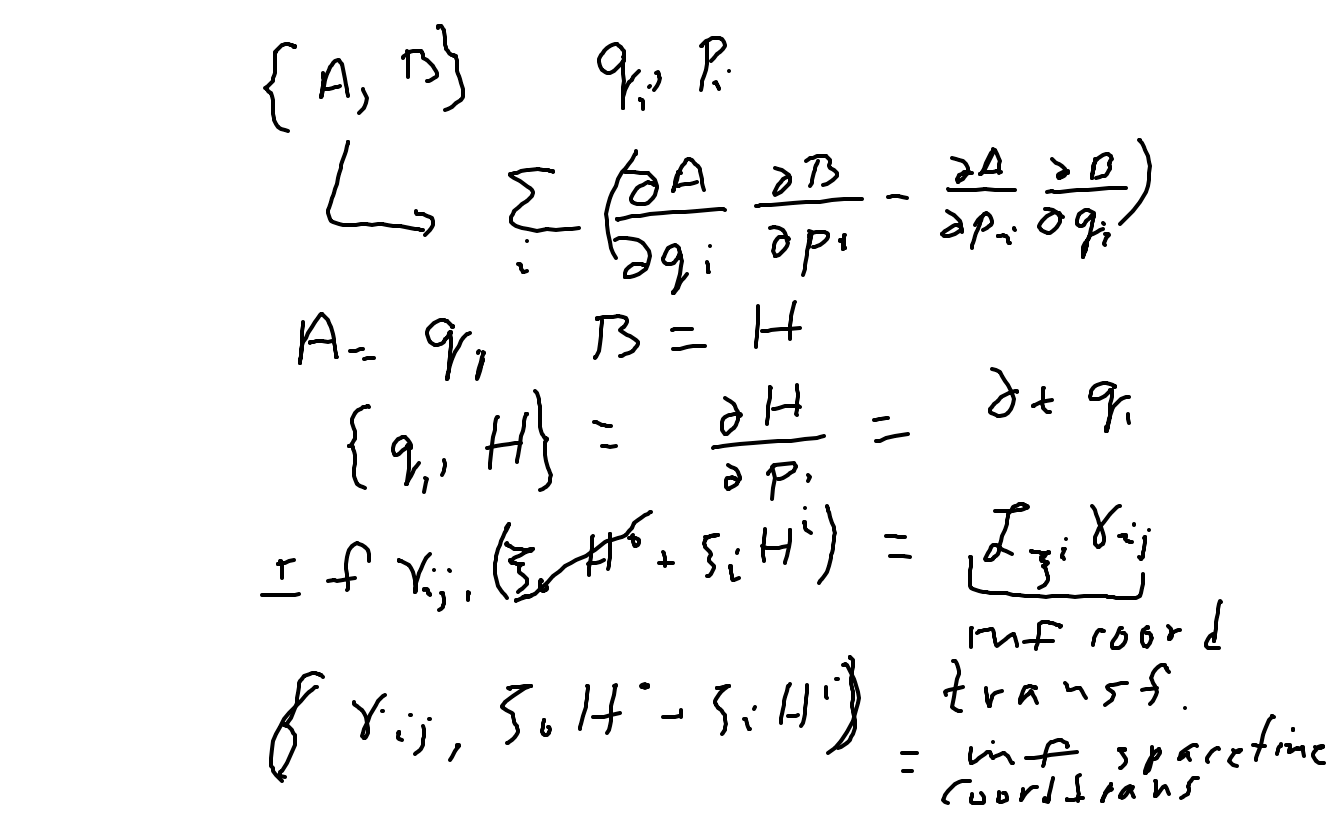 {A, B}   qᵢ, pᵢ
↳ Σᵢ (∂A/∂qᵢ ∂B/∂pᵢ − ∂A/∂pᵢ ∂B/∂qᵢ)
A = q₁   B = H
{q₁, H} = ∂H/∂pᵢ = ∂t qᵢ
γᵢⱼ, (ξ₀H⁰ + ξᵢHⁱ) = ℒ_ξⁱ γᵢⱼ
inf coord
transf.
{γᵢⱼ, ξ₀H⁰ − ξᵢHⁱ}
= inf spacetime
coord trans